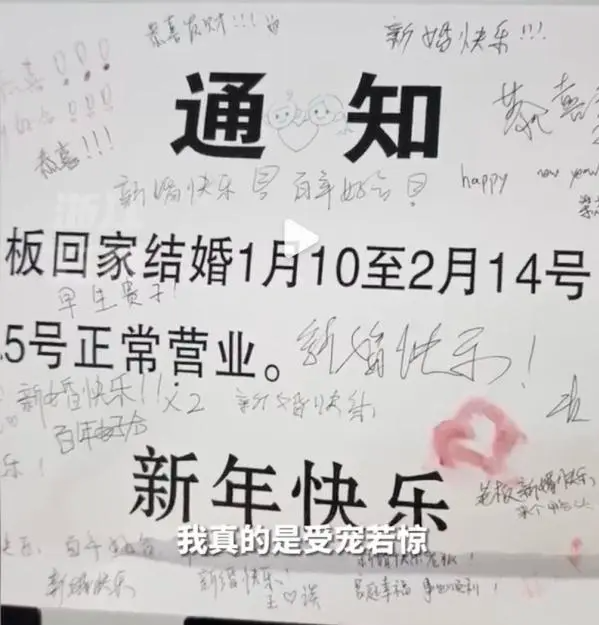 恭喜发财!!!
新婚快乐!!!
恭喜!!!
恭喜!!!
通知
新婚快乐 百年好合
happy new year
板回家结婚1月10至2月14号
早生贵子!
5号正常营业。
新婚快乐!
新婚快乐!! x2
新婚快乐
百年好合
乐!
新年快乐
老板新婚快乐,
我真的是受宠若惊
新婚快乐
新婚快乐!
新婚快乐老板!